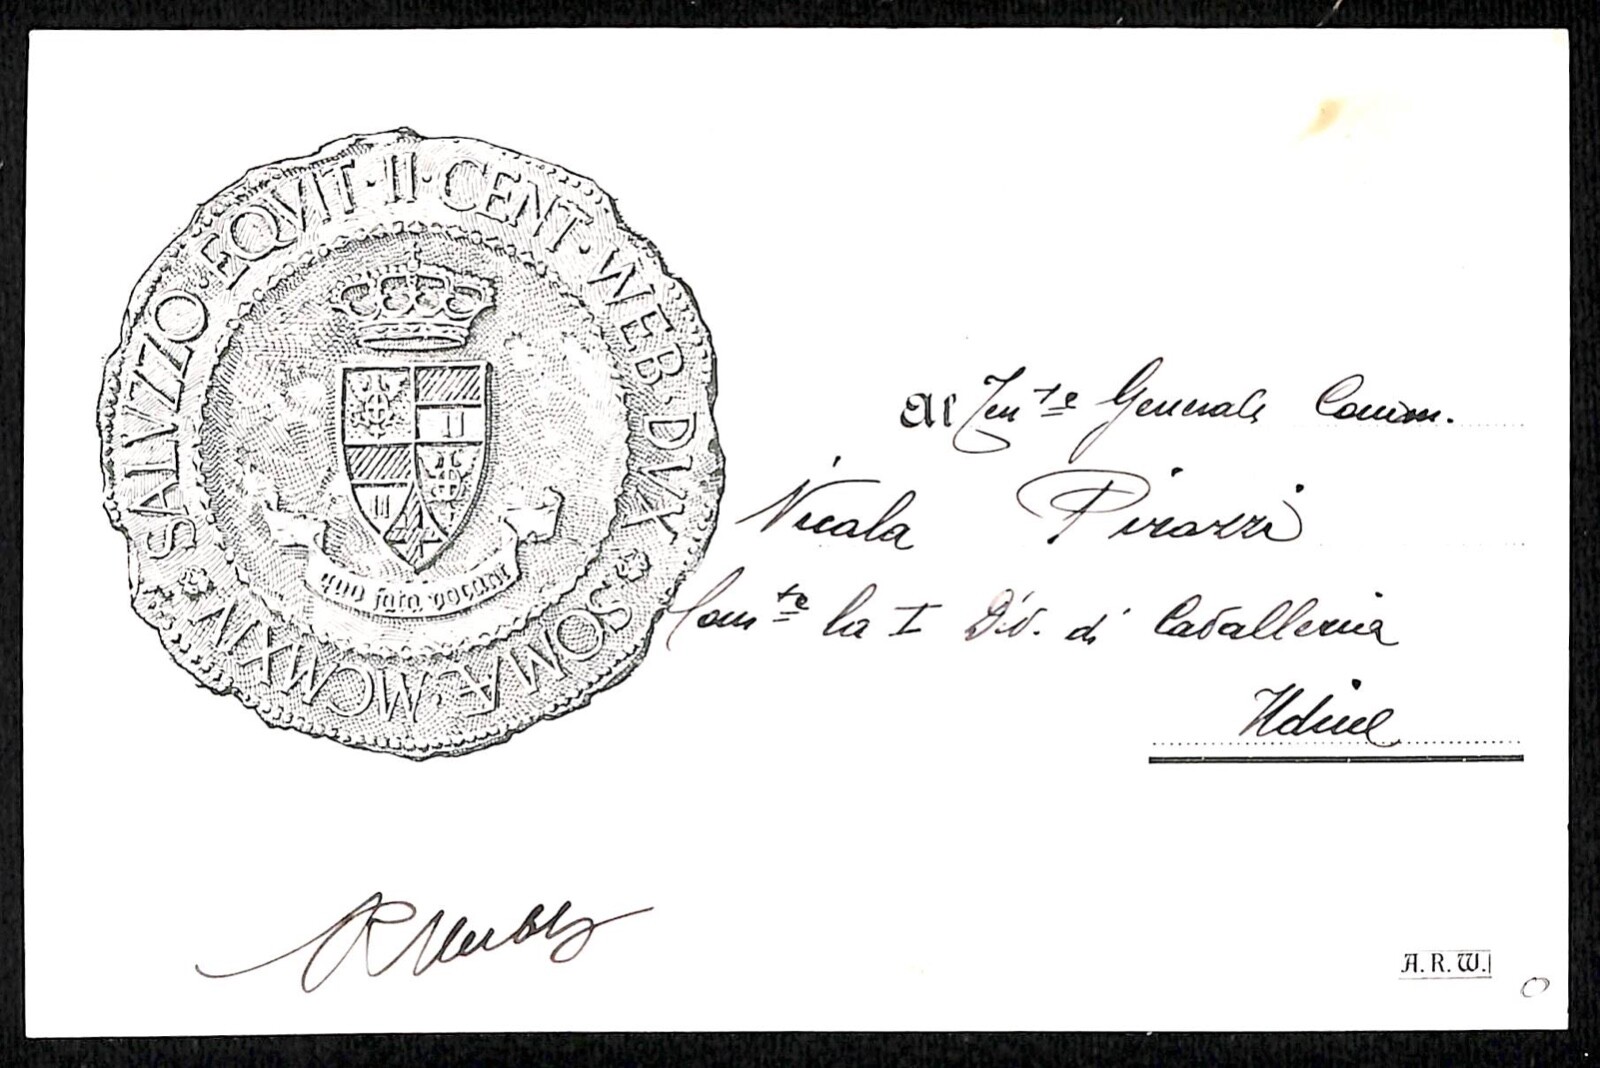 SALVZZO · EQVIT · II · CENT · WEB · DVX
SOMÆ · MCMXIV
II
II
quo fata vocant
Al Ten.te Generale Comm.
Nicola Pirozzi
Com.te la I Div. di Cavalleria
Udine
A. R. W.